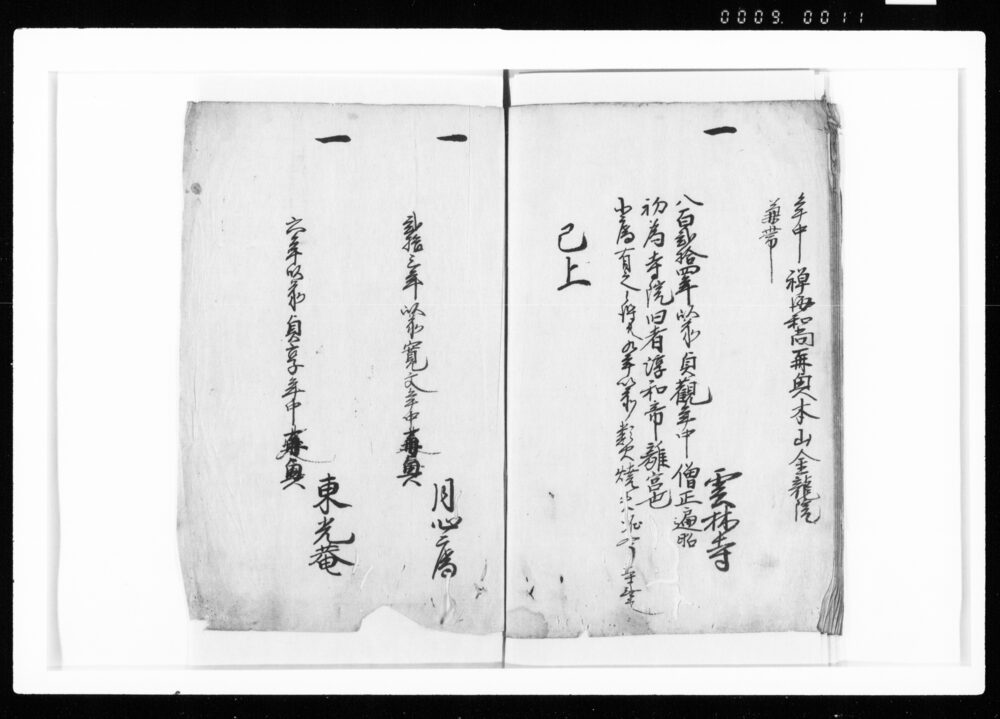 0009. 0011
年中禅海和尚再興本山金龍院
兼帯
一 雲林寺
八百弐拾四年以前貞觀年中僧正遍昭
初為寺院旧者淳和帝離宮也
小庵有之 九年以前類焼
已上
一 月心庵
弐拾三年以前寛文年中再興
一 東光菴
六年以前貞享年中再興